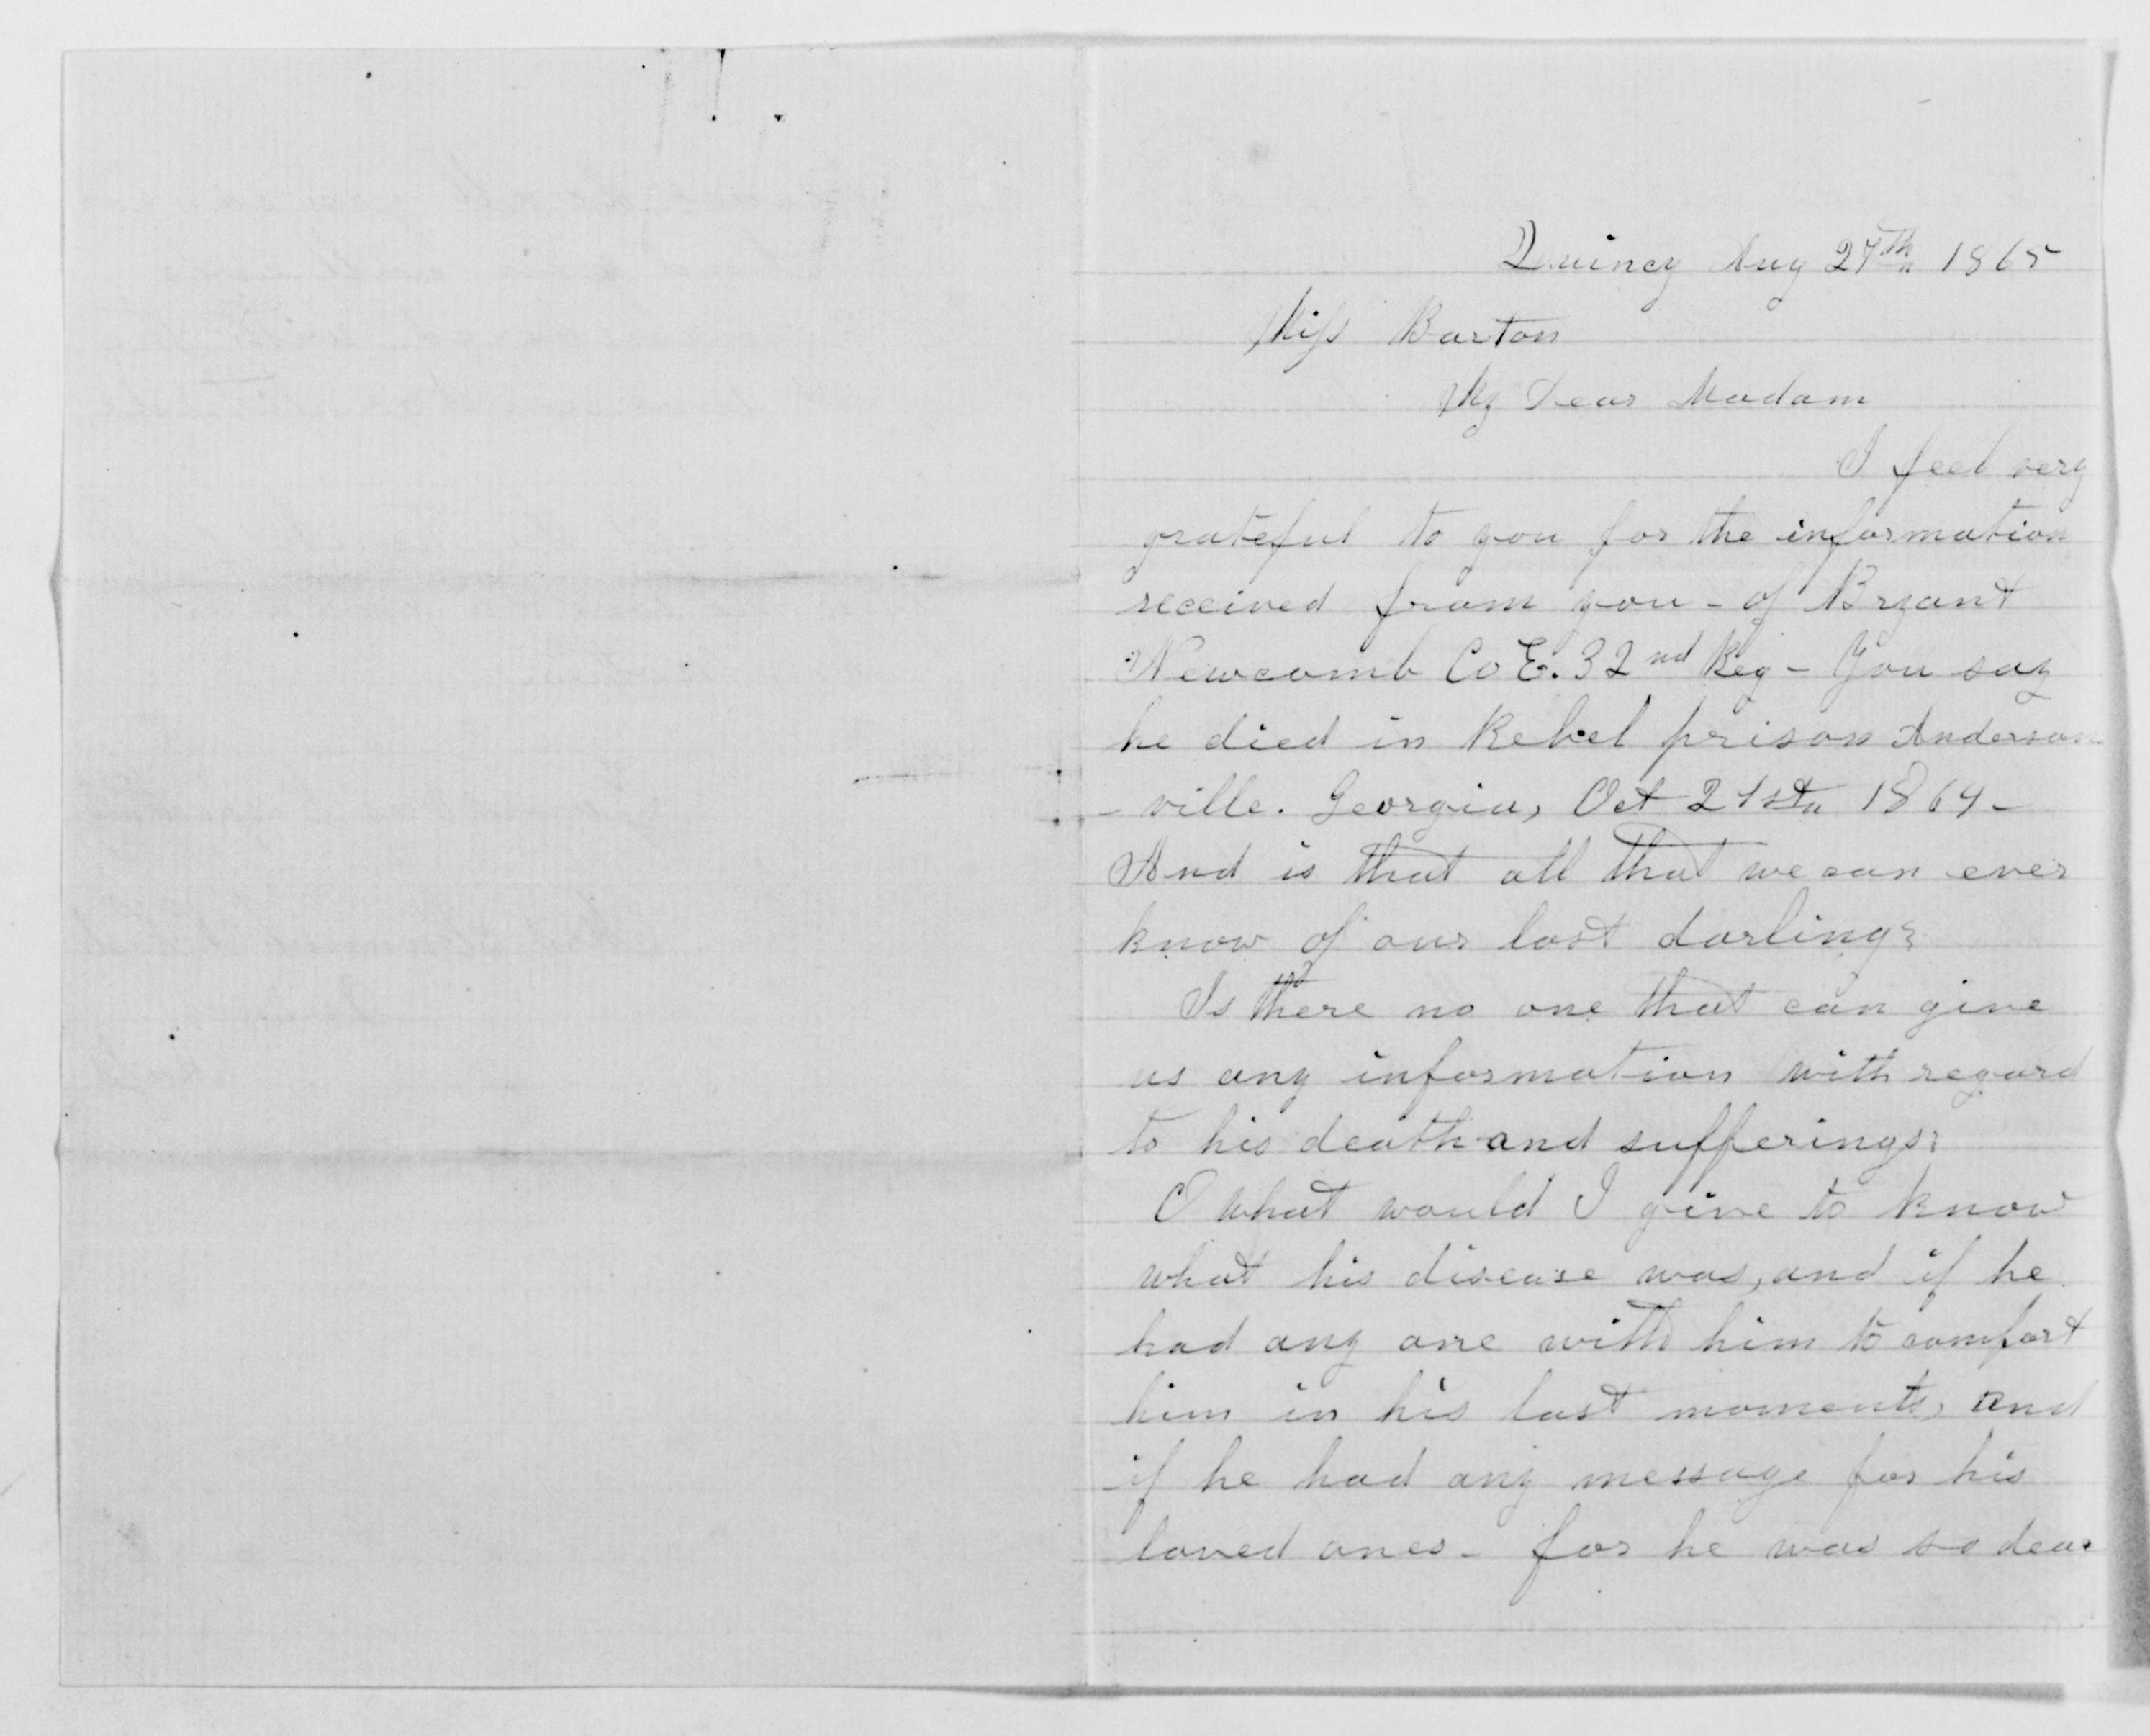 Quincy Aug 27th 1865
Miss Barton
My Dear Madam
I feel very
grateful to you for the information
received from you - of Bryant
Newcomb Co E. 32nd Reg - You say
he died in Rebel prison Anderson
- ville. Georgia, Oct 21st 1864 -
And is that all that we can ever
know of our lost darling?
Is there no one that can give
us any information with regard
to his death and sufferings?
O what would I give to know
what his disease was, and if he
had any one with him to comfort
him in his last moments, and
if he had any message for his
loved ones - for he was so dear